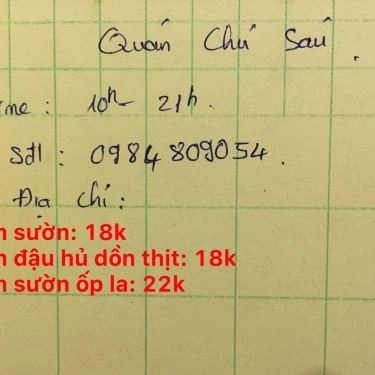 Quán Chú Sáu.
me: 10h - 21h.
Sđt: 0984809054.
Địa chỉ:
n sườn: 18k
n đậu hủ dồn thịt: 18k
n sườn ốp la: 22k